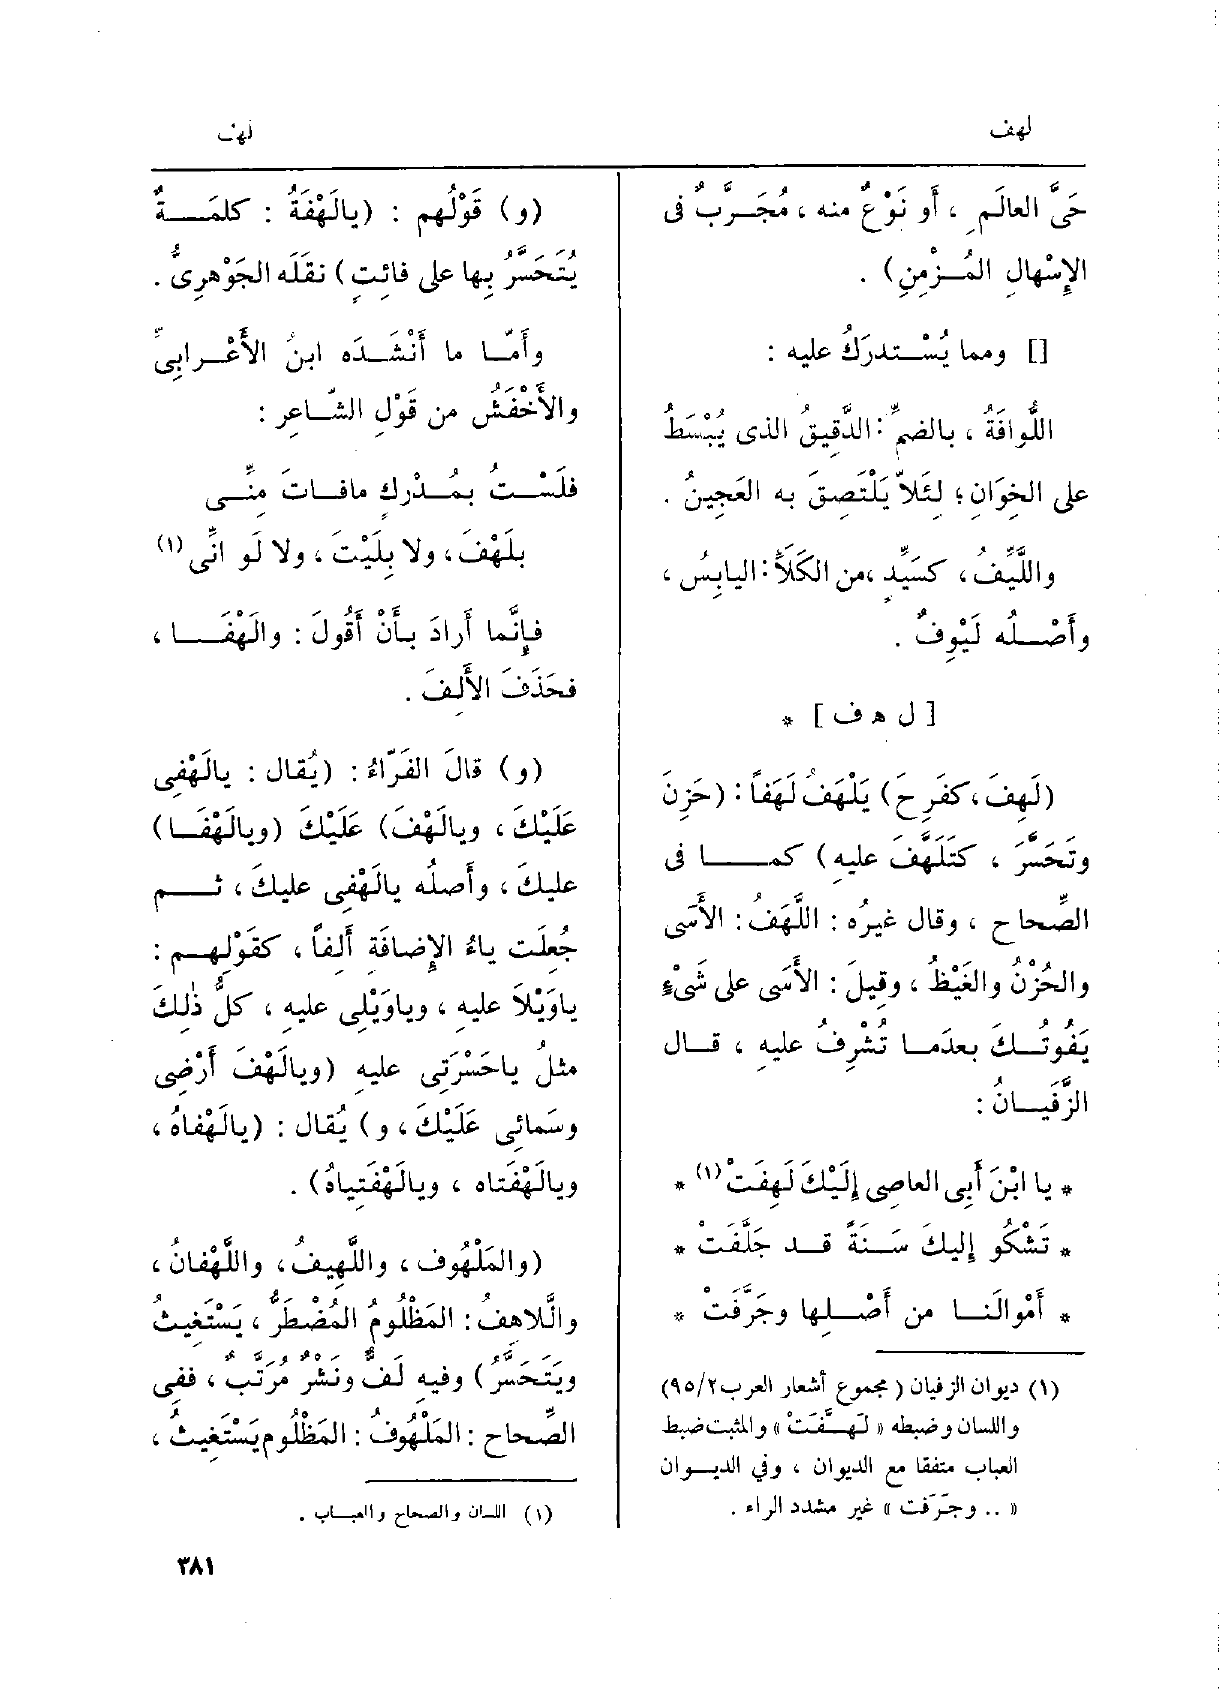 لهف
لهف
حَىَّ العالَمِ ، أو نَوْعٌ منه ، مُجَرَّبٌ فى
الإِسْهالِ المُزْمِنِ) .
[] ومما يُسْتدرَكُ عليه :
اللُّوافَةُ ، بالضمِّ : الدَّقِيقُ الذى يُبْسَطُ
على الخِوَانِ ؛ لِئَلاّ يَلْتَصِقَ به العَجِينُ .
واللَّيِّفُ ، كسَيِّدٍ ،من الكَلَأِ : اليابِسُ ،
وأَصْلُه لَيْوِفٌ .
[ ل ه ف ] *
(لَهِفَ ، كفَرِحَ) يَلْهَفُ لَهَفاً : (حَزِنَ
وتَحَسَّرَ ، كتَلَهَّفَ عليهِ) كما فى
الصِّحاحِ ، وقال غيرُه : اللَّهَفُ : الأَسَى
والحُزْنُ والغَيْظُ ، وقِيلَ : الأَسَى على شَىْءٍ
يَفُوتُكَ بعدَما تُشْرِفُ عليهِ ، قال
الزَّفَيانُ :
* يا ابْنَ أَبِى العاصِى إِلَيْكَ لَهِفَتْ (١) *
* تَشْكُو إِليكَ سَنَةً قد جَلَّفَتْ *
* أَمْوالَنا من أَصْلِها وجَرَّفَتْ *
(١) ديوان الزفيان ( مجموع أشعار العرب ٩٥/٢)
واللسان وضبطه « لَهَّفَتْ » والمثبت ضبط
العباب متفقا مع الديوان ، وفي الديوان
« .. وجَرَفت » غير مشدد الراء .
(و) قَوْلُهم : (يالَهْفَةُ : كلمَةٌ
يُتَحَسَّرُ بِها على فائِتٍ) نقَلَه الجَوْهرِىُّ .
وأَمّا ما أَنْشَدَه ابنُ الأَعْرابِىِّ
والأَخْفَشُ من قَوْلِ الشّاعِرِ :
فلَسْتُ بمُدْرِكٍ مافاتَ مِنِّى
بلَهْفَ ، ولا بِلَيْتَ ، ولا لَو انِّى (١)
فإِنَّما أَرادَ بأَنْ أَقُولَ : والَهْفَا ،
فحَذَفَ الأَلِفَ .
(و) قالَ الفَرّاءُ : (يُقال : يالَهْفِى
عَلَيْكَ ، ويالَهْفَ) عَلَيْكَ (ويالَهْفَا)
عليكَ ، وأَصلُه يالَهْفِى عليكَ ، ثم
جُعِلَت ياءُ الإِضافَةِ أَلِفاً ، كقَوْلِهم :
ياوَيْلَا عليهِ ، وياوَيْلِى عليهِ ، كلُّ ذٰلِكَ
مثلُ ياحَسْرَتِى عليهِ (ويالَهْفَ أَرْضِى
وسَمائِى عَلَيْكَ ، و) يُقال : (يالَهْفاهُ ،
ويالَهْفَتاه ، ويالَهْفَتِياهُ) .
(والمَلْهُوف ، واللَّهِيفُ ، واللَّهْفانُ ،
والَّلاهِفُ : المَظْلُومُ المُضْطَرُّ ، يَسْتَغِيثُ
ويَتَحَسَّرُ) وفيه لَفٌّ ونَشْرٌ مُرَتَّبٌ ، ففى
الصِّحاحِ : المَلْهُوفُ : المَظْلُوم يَسْتَغِيثُ ،
(١) اللسان والصحاح والعباب .
٣٨١